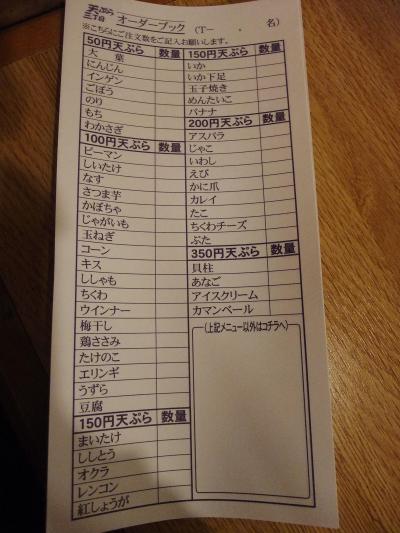 天ぷら
三丁目
オーダーブック (T− ・ 名)
※こちらにご注文数をご記入お願いします。
50円天ぷら 数量
大葉
にんじん
インゲン
ごぼう
のり
もち
わかさぎ
100円天ぷら 数量
ピーマン
しいたけ
なす
さつま芋
かぼちゃ
じゃがいも
玉ねぎ
コーン
キス
ししゃも
ちくわ
ウインナー
梅干し
鶏ささみ
たけのこ
エリンギ
うずら
豆腐
150円天ぷら 数量
まいたけ
ししとう
オクラ
レンコン
紅しょうが
150円天ぷら 数量
いか
いか下足
玉子焼き
めんたいこ
バナナ
200円天ぷら 数量
アスパラ
じゃこ
いわし
えび
かに爪
カレイ
たこ
ちくわチーズ
ぶた
350円天ぷら 数量
貝柱
あなご
アイスクリーム
カマンベール
(上記メニュー以外はコチラへ)